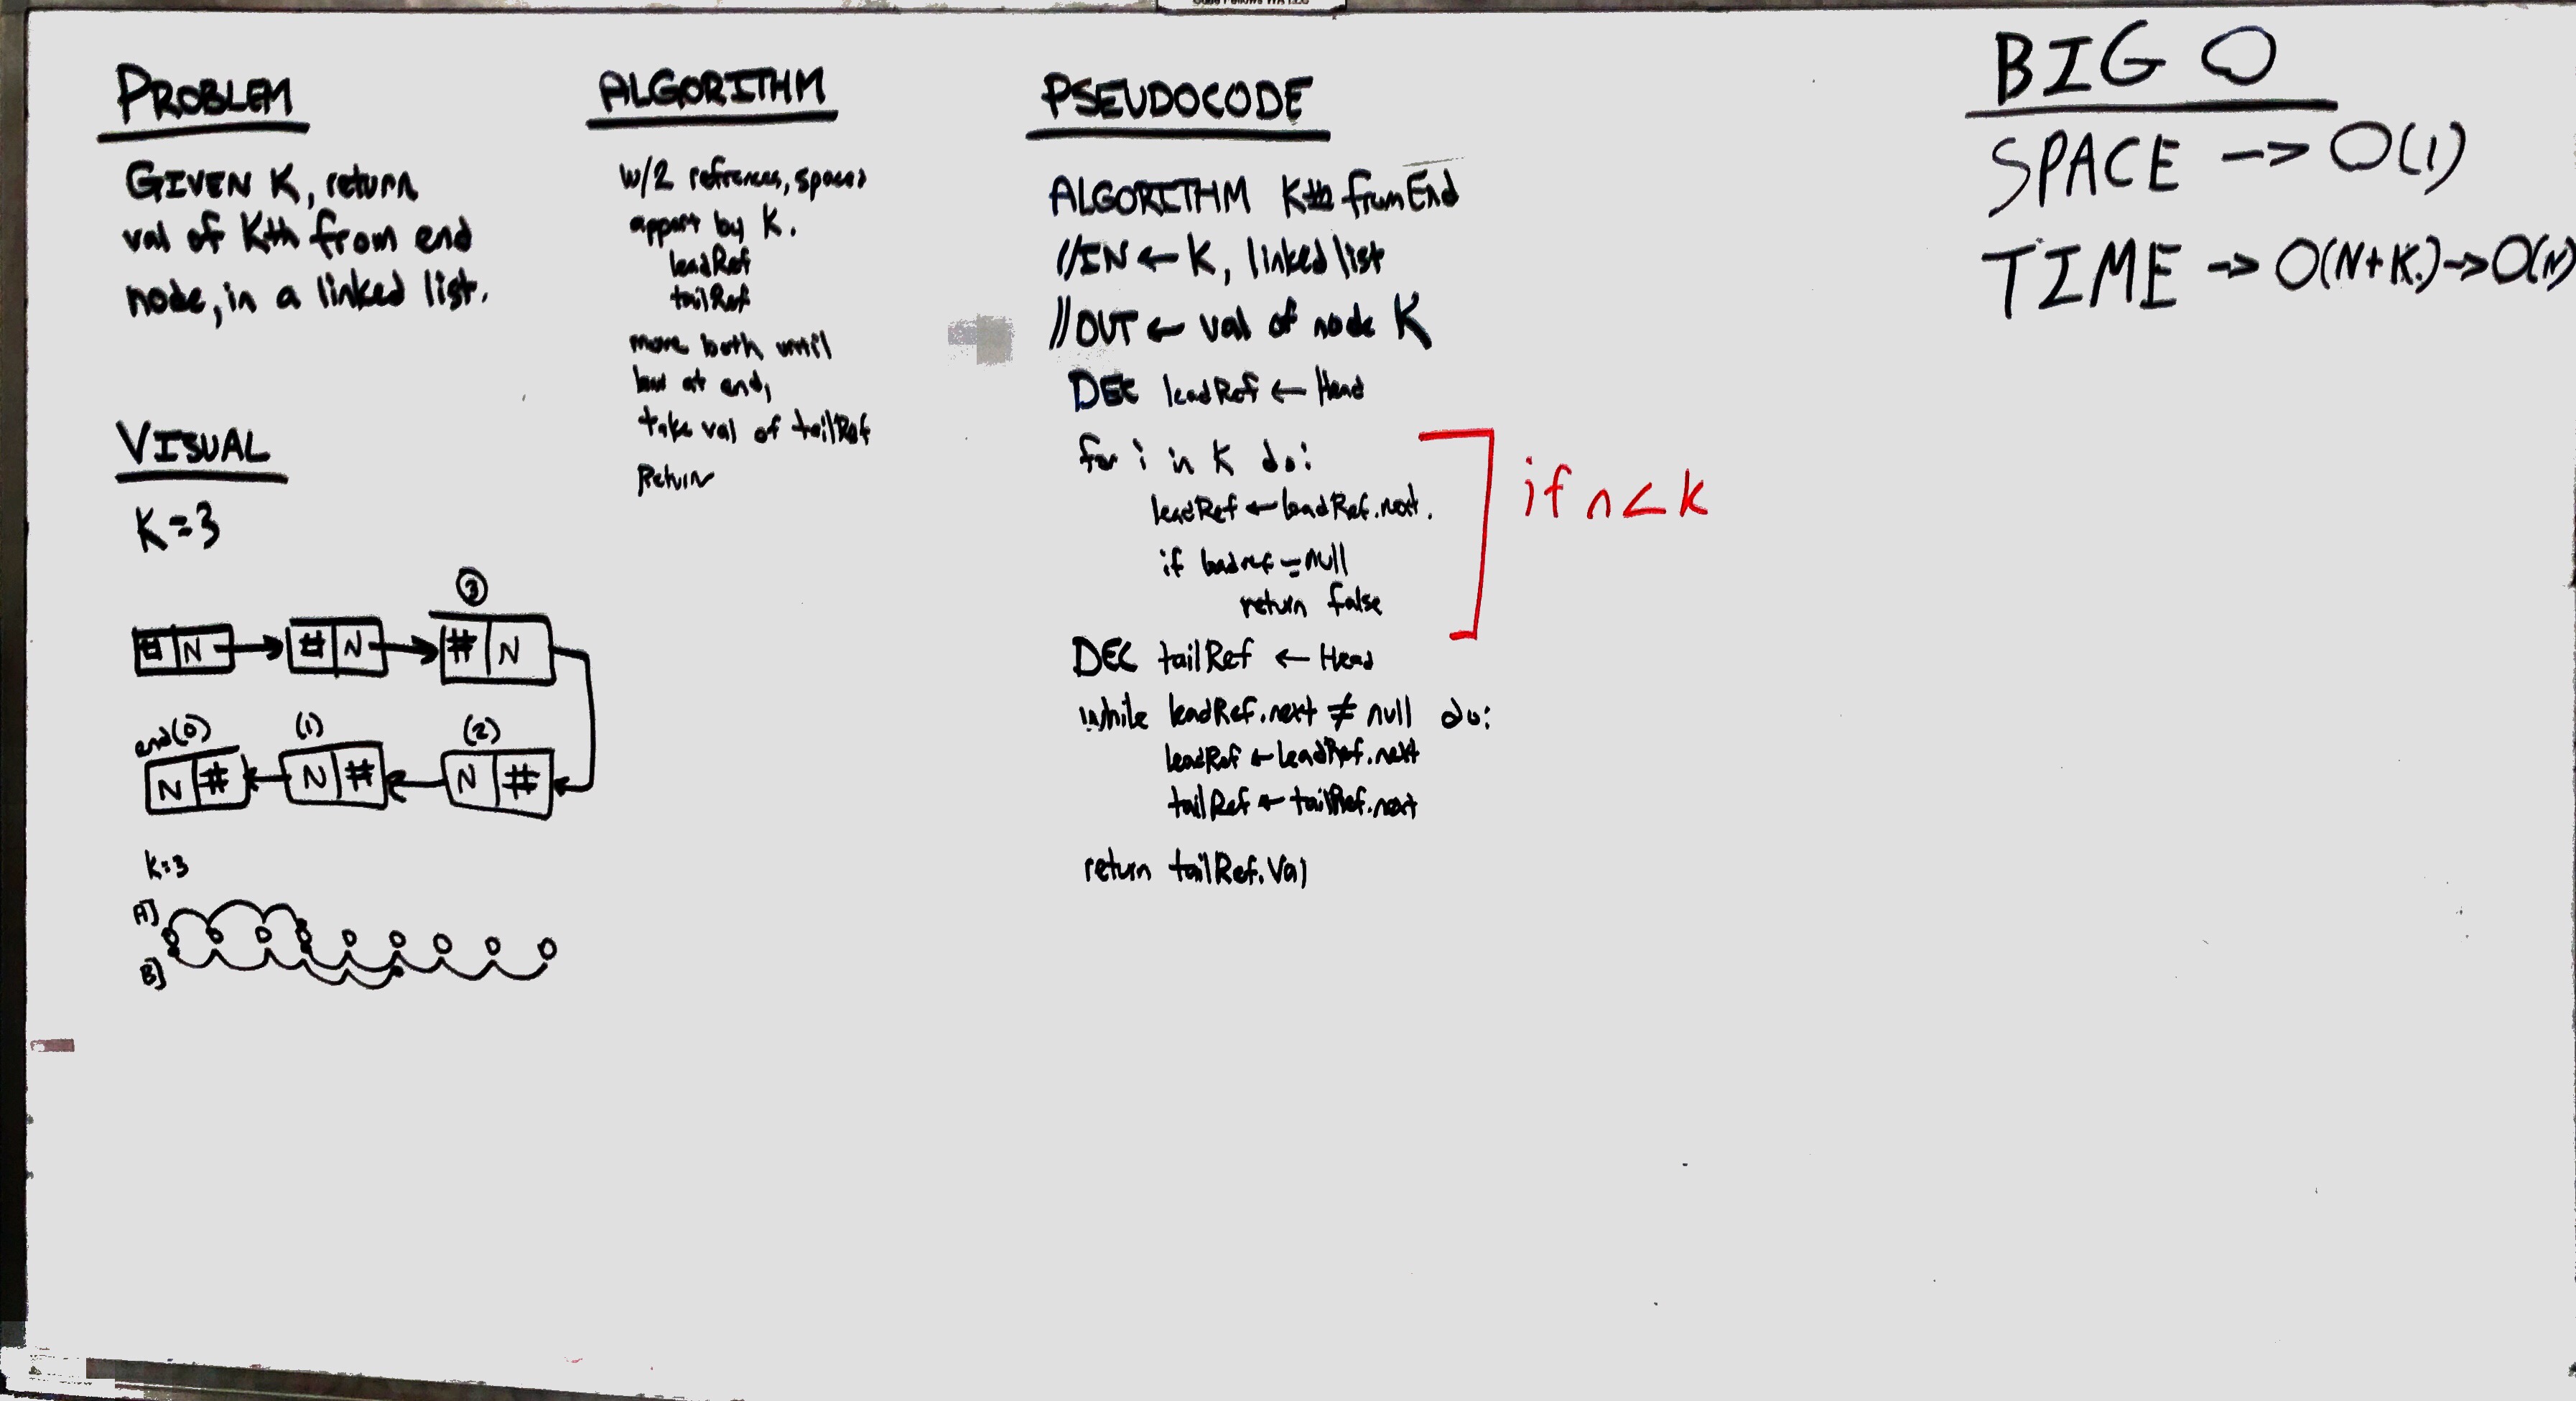 PROBLEM
GIVEN K, return
val of Kth from end
node, in a linked list.
VISUAL
K=3
3
# N # N # N
end(0) (1) (2)
N # N # N #
K=3
A]
B]
ALGORITHM
w/2 refrences, spaced
appart by K.
leadRef
tailRef
move both until
lead at end,
take val of tailRef
Return
PSEUDOCODE
ALGORITHM Kth from End
//IN ← K, linked list
//OUT ← val of node K
DEC leadRef ← Head
for i in K do:
leadRef ← leadRef.next.
if leadref = null
return false
if n < k
DEC tailRef ← Head
while leadRef.next ≠ null do:
leadRef ← leadRef.next
tailRef ← tailRef.next
return tailRef.Val
BIG O
SPACE -> O(1)
TIME -> O(N+K) -> O(N)